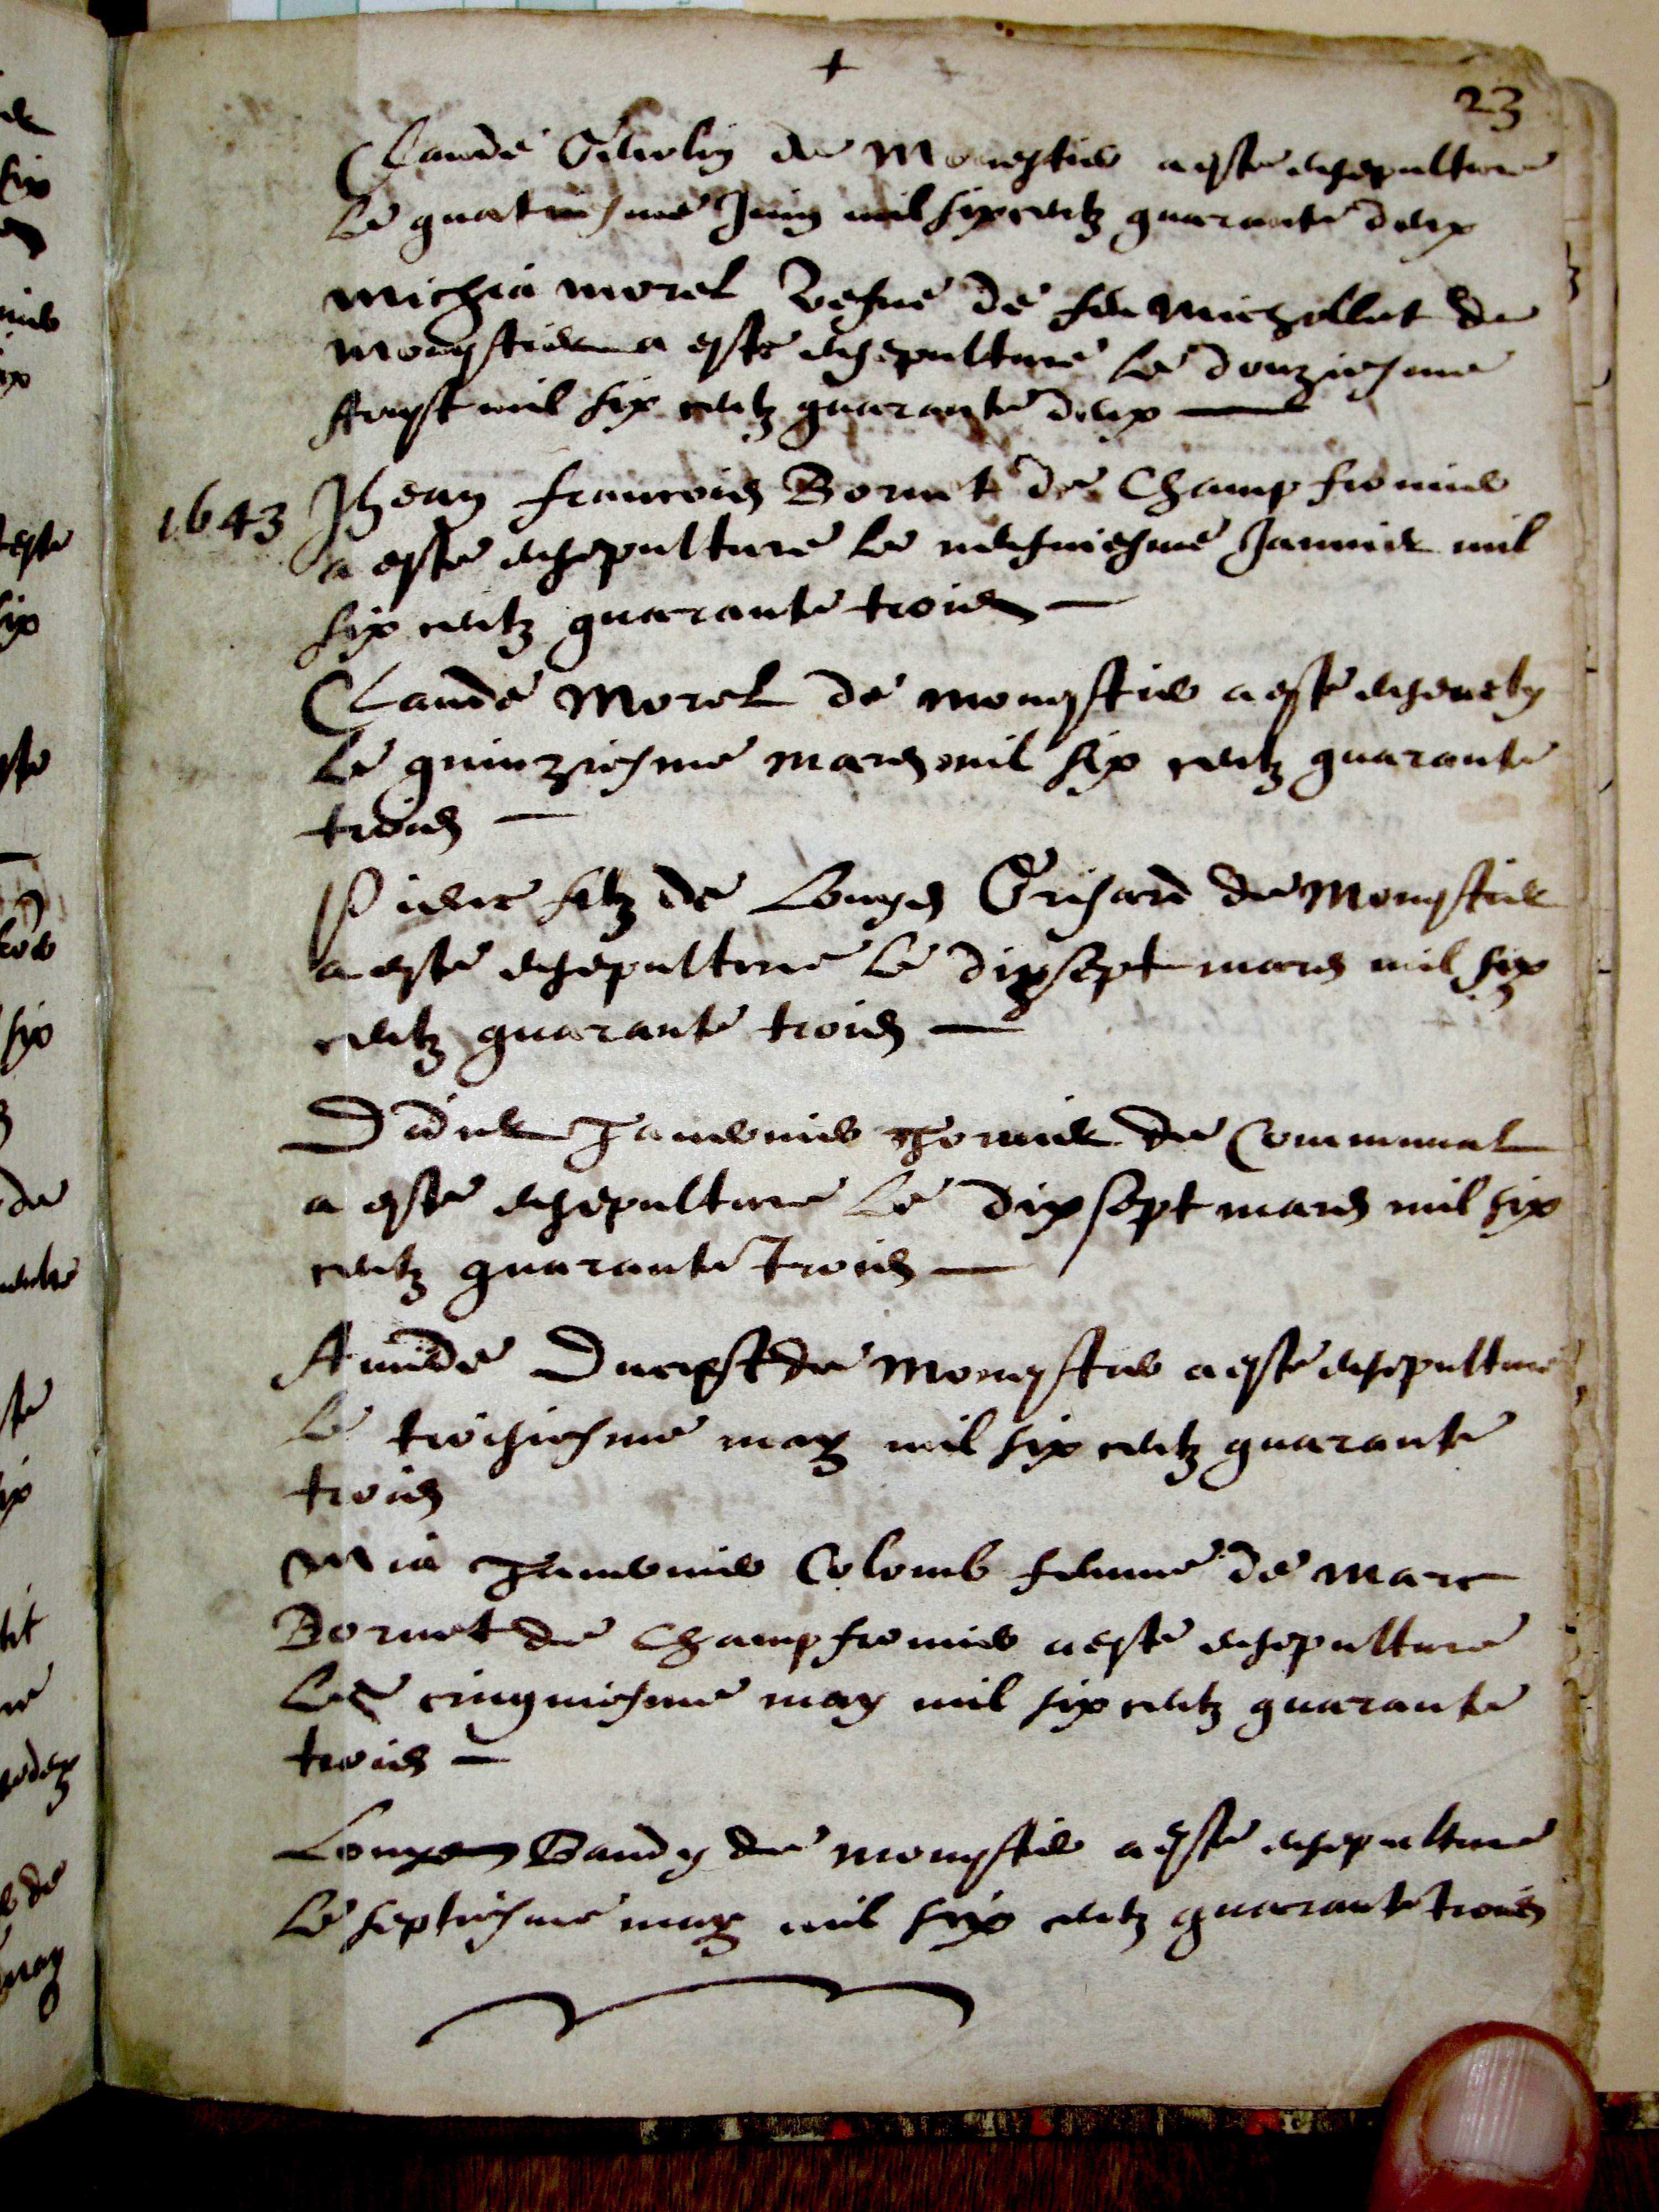 +
23
Claude de Monestier a esté ensepulture
le quatriesme Juing mil six centz quarante deux
Michia Morel vefue de feu Michollet de
Monestier a esté ensepulturé le douziesme
Aougst mil six centz quarante deux
1643
Jhean Francois Bornet de Champfromier
a esté ensepulture le neufuiesme Januier mil
six centz quarante trois
Claude Morel de Monestier a esté enseuely
le quinziesme mars mil six centz quarante
trois
Pierre filz de Louys Grisard de Monestier
a esté ensepulture le dix sept mars mil six
centz quarante trois
Didier Tavernier de Communal
a esté ensepulture le dix sept mars mil six
centz quarante trois
Amide Ducrest de Monestier a esté ensepulture
le troisiesme may mil six centz quarante
trois
Mia Tavernier Colomb femme de Marc
Bornet de Champfromier a esté ensepulture
le cinquiesme may mil six centz quarante
trois
Baudy de Monestier a esté ensepulture
le septiesme may mil six centz quarante trois